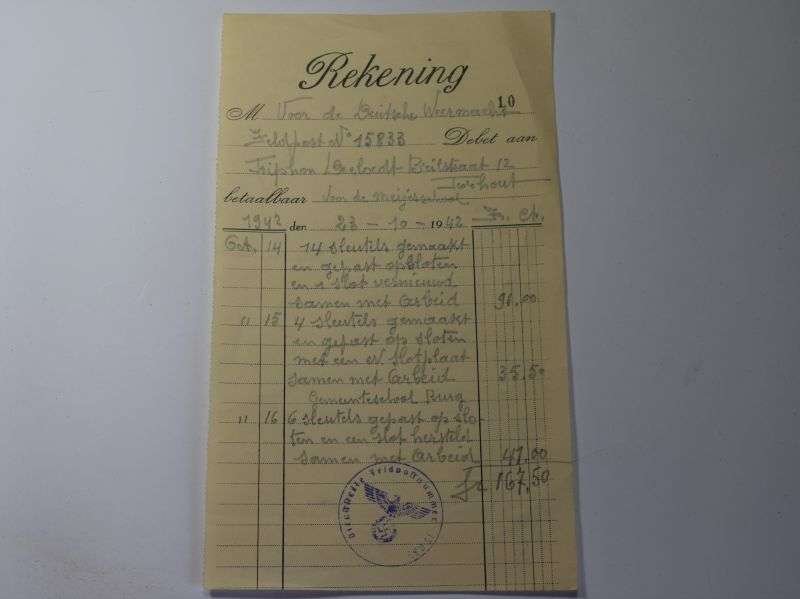 Rekening
10
M Voor de Deutsche Weermacht
Feldpost No 15833 Debet aan
Triphon Beilstraat 12
Torhout
betaalbaar Voor de Meisjesschool
1942 den 23 - 10 - 1942 Fr. Ct.
Oct. 14 14 sleutels gemaakt
en gepast op sloten
en 1 slot vernieuwd
samen met Arbeid 91.00
" 15 4 sleutels gemaakt
en gepast op sloten
met een slotplaat
samen met Arbeid 35.50
Gemeenteschool Burg
" 16 6 sleutels gepast op slo-
ten en een slot hersteld
samen met Arbeid 41.00
Fr 167,50
Dienststelle Feldpostnummer